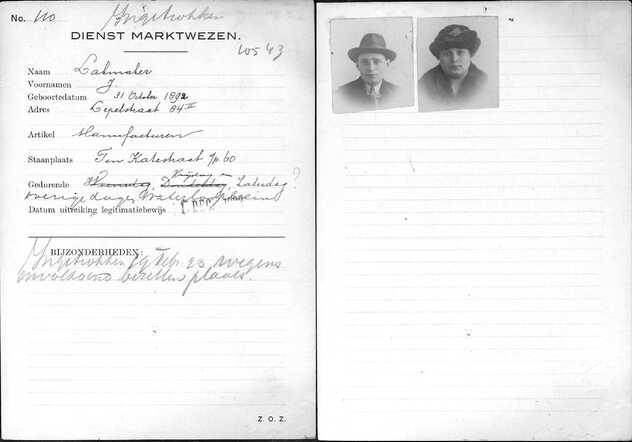 No. 110 Ingetrokken
DIENST MARKTWEZEN.
10543
Naam Lakmaker
Voornamen J.
Geboortedatum 31 October 1892
Adres Lepelstraat 84 II
Artikel Manufacturen
Staanplaats Ten Katestraat 60
Vrijdag
Gedurende Woensdag, Donderdag, Zaterdag?
overige dagen Waterlooplein
Datum uitreiking legitimatiebewijs DEC.
BIJZONDERHEDEN:
Ingetrokken 19 Febr 23 wegens
onvoldoend bezetten plaats.
Z. O. Z.